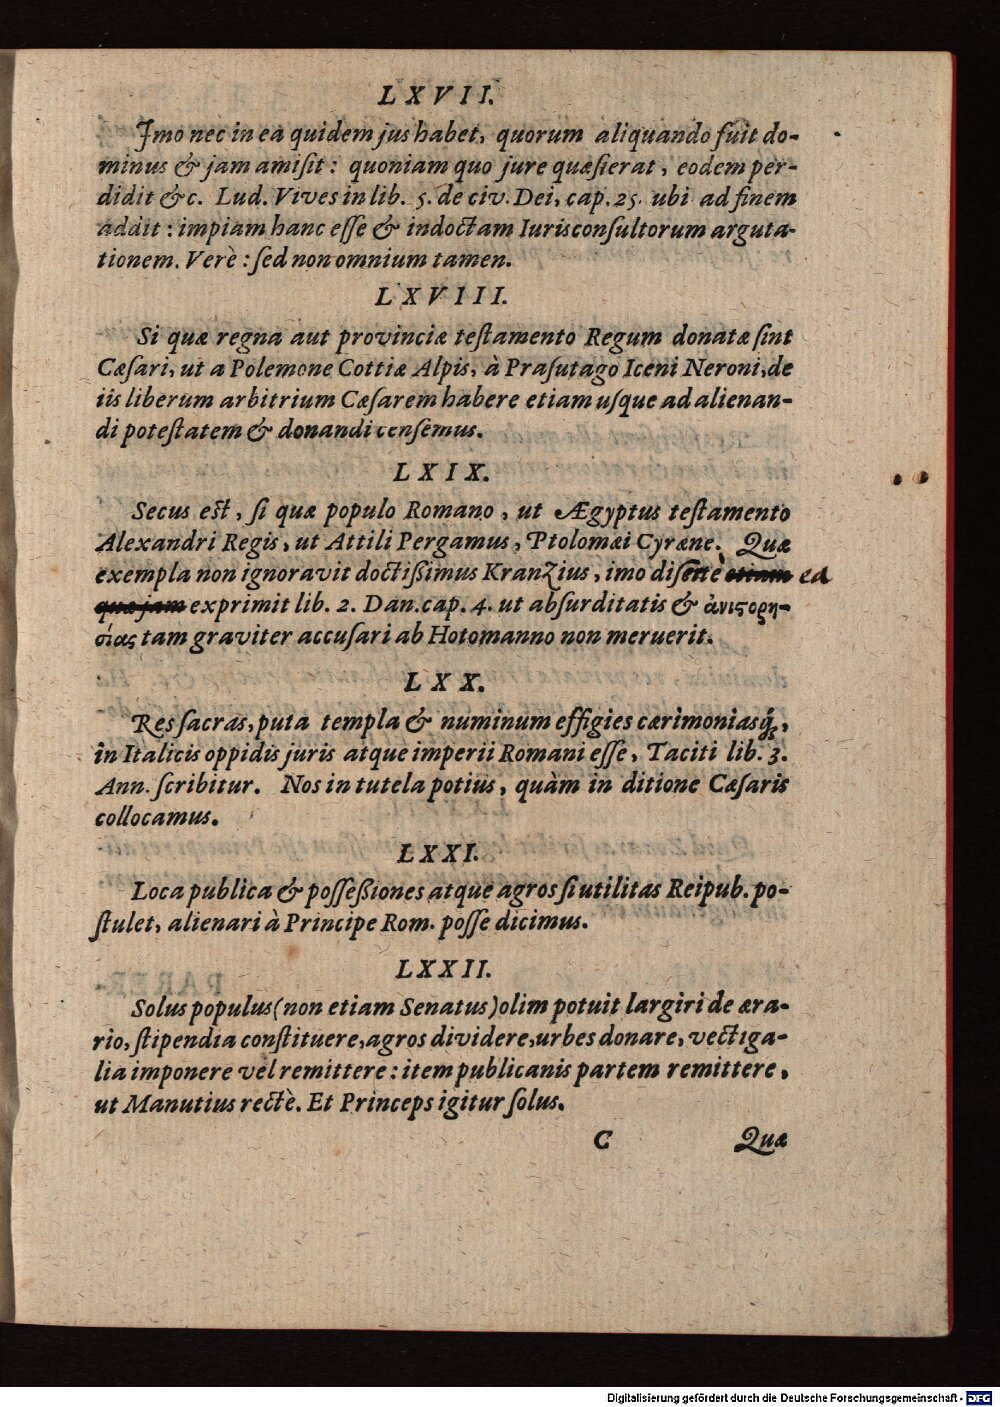 LXVII.
Imo nec in ea quidem jus habet, quorum aliquando fuit do-
minus & jam amiſit: quoniam quo jure quæſierat, eodem per-
didit &c. Lud. Vives in lib. 5. de civ. Dei, cap. 25. ubi ad finem
addit: impiam hanc eſſe & indoctam Iurisconſultorum arguta-
tionem. Verè: ſed non omnium tamen.
LXVIII.
Si quæ regna aut provinciæ teſtamento Regum donatæ ſint
Cæſari, ut a Polemone Cottiæ Alpis, à Praſutago Iceni Neroni, de
iis liberum arbitrium Cæſarem habere etiam uſque ad alienan-
di poteſtatem & donandi cenſemus.
LXIX.
Secus eſt, ſi quæ populo Romano, ut Ægyptus teſtamento
Alexandri Regis, ut Attili Pergamus, Ptolomæi Cyræne. Quæ
exempla non ignoravit doctißimus Kranzius, imo diſertè etiam ea
quæ jam exprimit lib. 2. Dan. cap. 4. ut abſurditatis & ἀνιϛορη-
σίας tam graviter accuſari ab Hotomanno non meruerit.
LXX.
Res ſacras, puta templa & numinum effigies cærimoniasq́;,
in Italicis oppidis juris atque imperii Romani eſſe, Taciti lib. 3.
Ann. ſcribitur. Nos in tutela potius, quàm in ditione Cæſaris
collocamus.
LXXI.
Loca publica & poſſeßiones atque agros ſi utilitas Reipub. po-
ſtulet, alienari à Principe Rom. poſſe dicimus.
LXXII.
Solus populus (non etiam Senatus) olim potuit largiri de æra-
rio, ſtipendia conſtituere, agros dividere, urbes donare, vectiga-
lia imponere vel remittere: item publicanis partem remittere,
ut Manutius rectè. Et Princeps igitur ſolus.
C Quæ
Digitalisierung gefördert durch die Deutsche Forschungsgemeinschaft - DFG